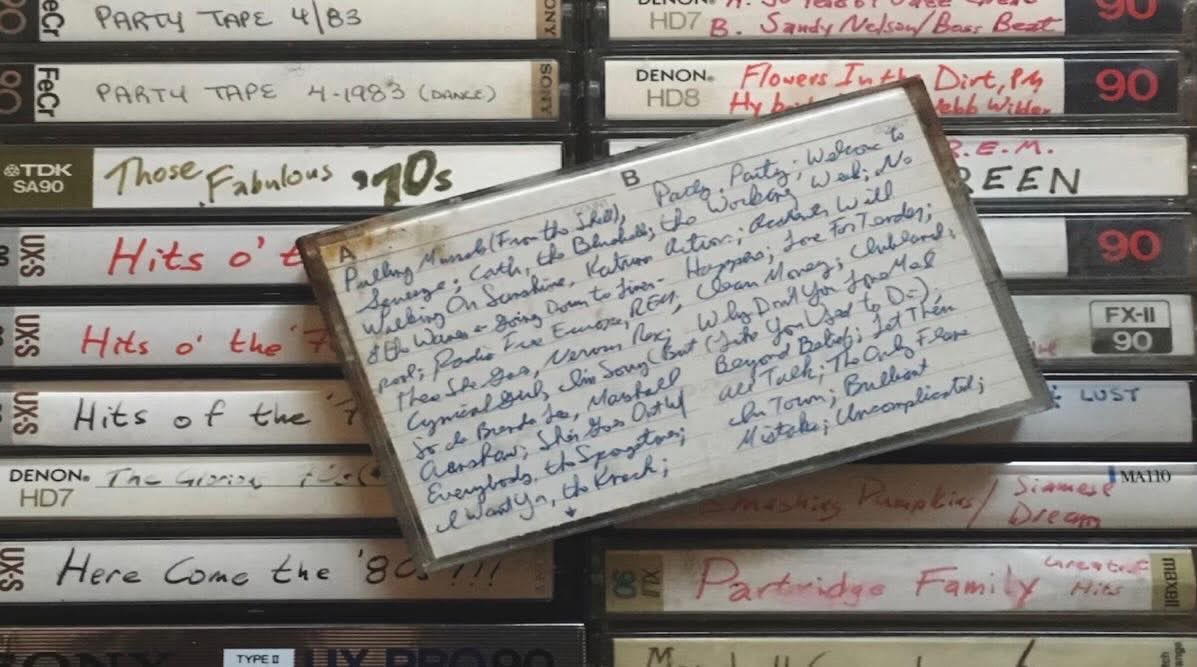 FeCr
PARTY TAPE 4/83
SONY
FeCr
PARTY TAPE 4-1983 (DANCE)
SONY
TDK
SA90
Those Fabulous '70s
UX-S
Hits o' t
UX-S
Hits o' the '7
UX-S
Hits of the '7
DENON
HD7
The
UX-S
Here Come the '80s!!!
SONY
TYPE II
UX-PRO 90
DENON
HD7
B. Sandy Nelson/Boss Beat
90
DENON
HD8
Flowers In the Dirt, PM
Hyb ebb Wilder
90
R.E.M.
REEN
90
FX-II
90
LUST
MA110
Smashing Pumpkins/ Siamese
Dream
Partridge Family Greatest
Hits
maxell
A
Pulling Mussels (From the Shell),
Squeeze; Cath, the Bluebells;
Walking On Sunshine, Katrina
& the Waves - Going Down to Liver-
pool; Radio Free Europe, REM,
There She Goes, Nervous Rex;
Cynical Girl, I'm Sorry (But
So is Brenda Lee, Marshall
Crenshaw; She Goes Out w/
Everybody, the Spongetones;
I Want You, the Knack;
B
Party, Party; Welcome to
the Working Week; No
Action; Accidents Will
Happen; Love For Tender;
Clean Money; Clubland;
Why Don't You Love Me
(Like You Used to Do);
Beyond Belief; Let Them
All Talk; The Only Flame
In Town; Brilliant
Mistake; Uncomplicated;